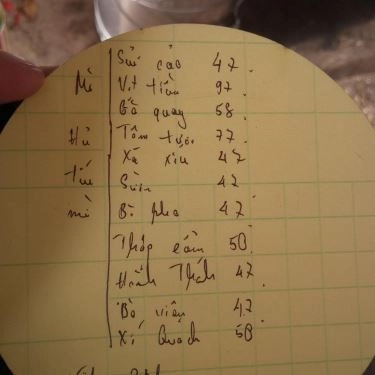 Sủi cảo 47.
Mì Vịt tiềm 97.
Gà quay 58.
Hủ Tôm tươi 77.
Xá xíu 47
tíu Sườn 47
mì Bò kho 47.
Thập cẩm 50.
Hoành Thánh 47.
Bò viên 47.
Xí Quách 50.